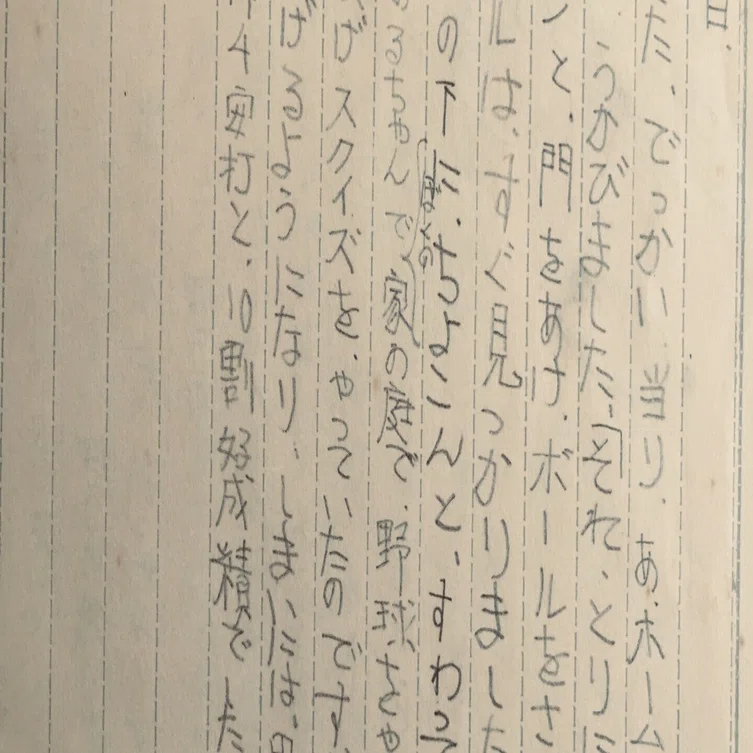 た、でっかい当り、あ、ホーム
うかびました、「それ、とりに
と、門をあけ、ボールをさ
ルは、すぐ見つかりました
の下に、ちょこんと、すわって
るちゃんで、家の庭で、野球をや
げスクイズを、やっていたのです、
げるようになり、しまいには、
4安打と、10割好成績でした